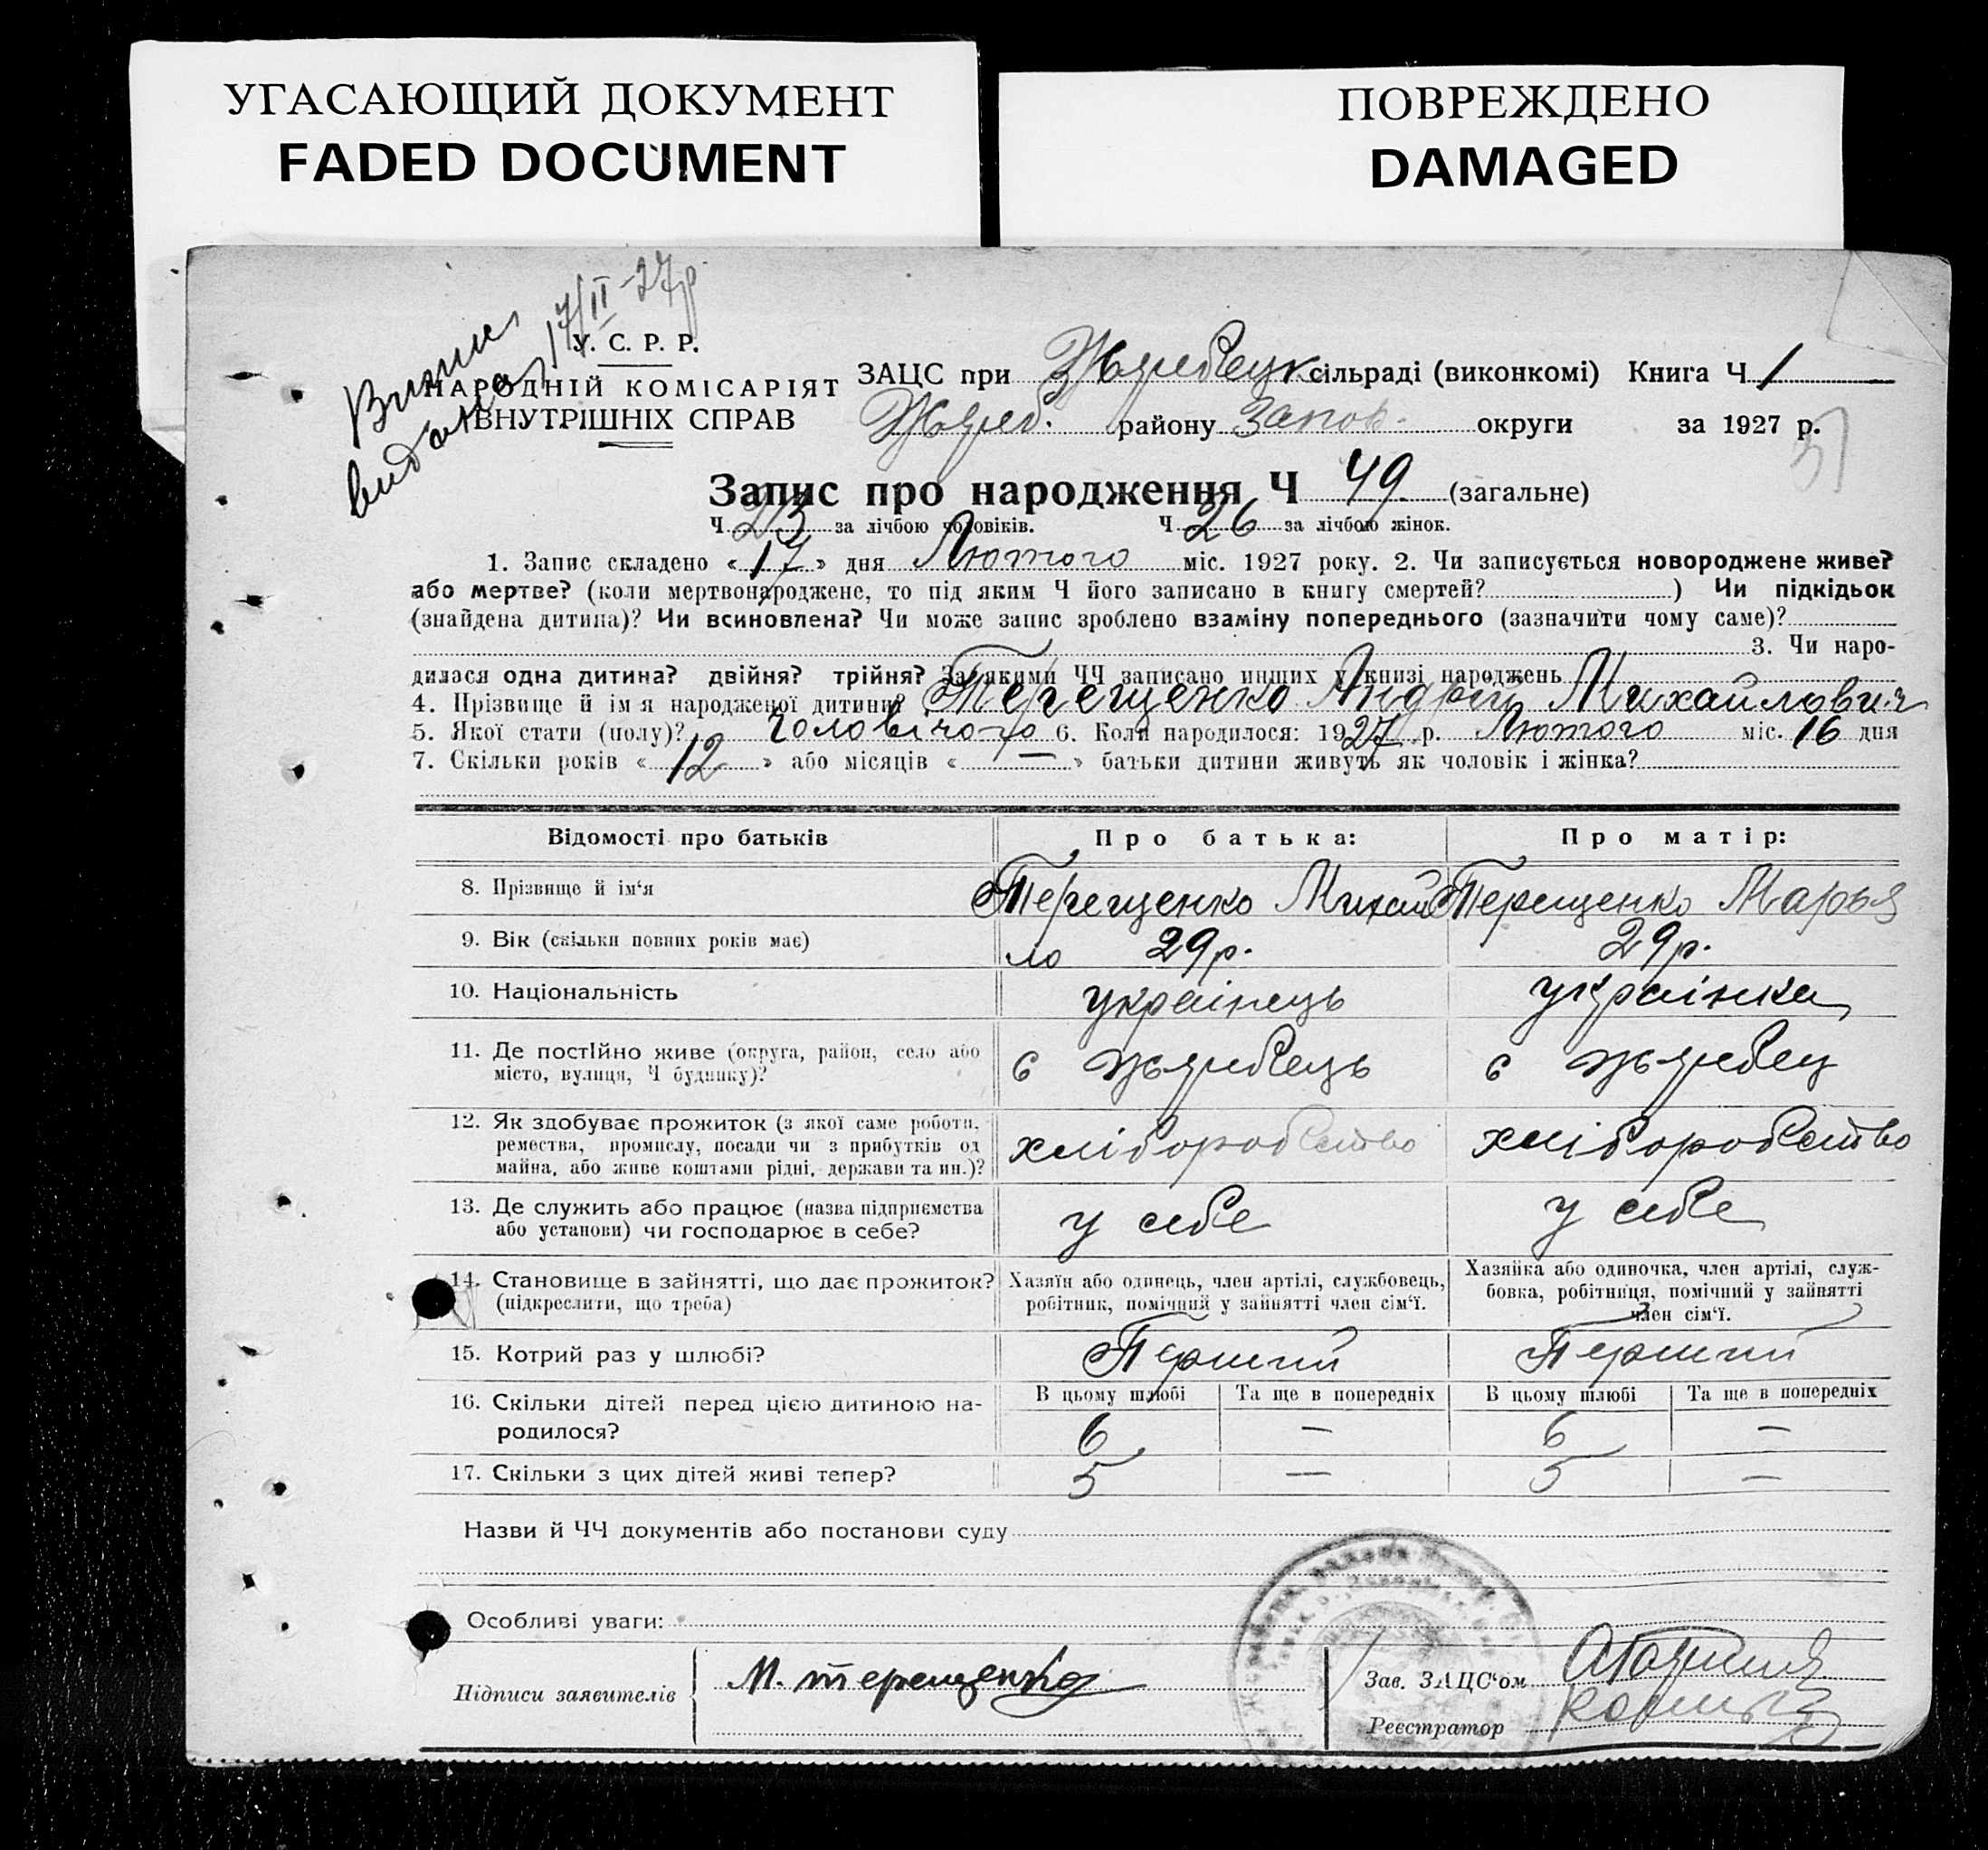 УГАСАЮЩИЙ ДОКУМЕНТ
FADED DOCUMENT
ПОВРЕЖДЕНО
DAMAGED
Випис
видано 17/II-27р
У. С. Р. Р.
НАРОДНІЙ КОМІСАРІЯТ
ВНУТРІШНІХ СПРАВ
ЗАЦС при Жеребецк сільраді (виконкомі) Книга Ч 1
Жереб. району Запор. округи за 1927 р.
Запис про народження Ч 49 (загальне)
Ч 23 за лічбою чоловіків. Ч 26 за лічбою жінок.
1. Запис складено «17» дня Лютого міс. 1927 року. 2. Чи записується новороджене живе?
або мертве? (коли мертвонароджене, то під яким Ч його записано в книгу смертей? ) Чи підкідьок
(знайдена дитина)? Чи всиновлена? Чи може запис зроблено взаміну попереднього (зазначити чому саме)?
3. Чи наро-
дилася одна дитина? двійня? трійня? За якими ЧЧ записано инших у книзі народжень
4. Прізвище й ім'я народженої дитини? Терещенко Андрій Михайлович
5. Якої стати (полу)? Чоловічого 6. Коли народилося: 1927 р. Лютого міс. 16 дня
7. Скільки років «12» або місяців «—» батьки дитини живуть як чоловік і жінка?
Відомості про батьків Про батька: Про матір:
8. Прізвище й ім'я Терещенко Михай Терещенко Марья
9. Вік (скільки повних років має) ло 29р. 29р.
10. Національність українець українка
11. Де постійно живе (округа, район, село або
місто, вулиця, Ч будинку)? с Жеребець с Жеребец
12. Як здобуває прожиток (з якої саме роботи,
ремества, промислу, посади чи з прибутків од
майна, або живе коштами рідні, держави та ин.)? хліборобство хліборобство
13. Де служить або працює (назва підприємства
або установи) чи господарює в себе? у себе у себе
14. Становище в зайнятті, що дає прожиток?
(підкреслити, що треба)
Хазяїн або одинець, член артілі, службовець,
робітник, помічний у зайнятті член сім'ї.
Хазяйка або одиночка, член артілі, служ-
бовка, робітниця, помічний у зайнятті
член сім'ї.
15. Котрий раз у шлюбі? Перший Перший
16. Скільки дітей перед цією дитиною на-
родилося?
В цьому шлюбі Та ще в попередніх В цьому шлюбі Та ще в попередніх
6 — 6 —
17. Скільки з цих дітей живі тепер? 5 — 5 —
Назви й ЧЧ документів або постанови суду
Особливі уваги:
Підписи заявителів М. терещенко
Зав. ЗАЦС'ом
Реєстратор